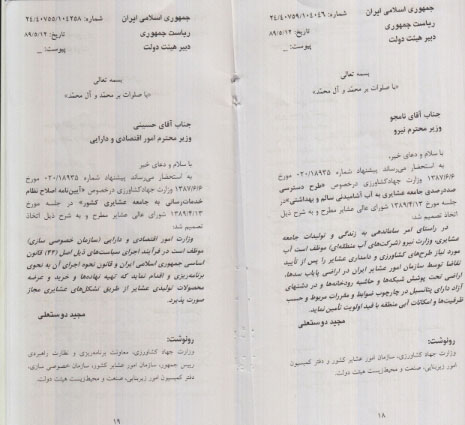 جمهوری اسلامی ایران
ریاست جمهوری
دبیر هیئت دولت
شماره: ۲۴/۴۰۷۵۹/۱۰۴۰۴۶
تاریخ: ۸۹/۵/۱۲
پیوست: _
بسمه تعالی
«با صلوات بر محمّد و آل محمّد»
جناب آقای نامجو
وزیر محترم نیرو
با سلام و دعای خیر،
به استحضار می‌رساند پیشنهاد شماره ۰۲۰/۱۸۹۳۵ مورخ
۱۳۸۷/۶/۶ وزارت جهادکشاورزی درخصوص «طرح دسترسی
صددرصدی جامعه عشایری به آب آشامیدنی سالم و بهداشتی» در جلسه
مورخ ۱۳۸۹/۴/۱۳ شورای عالی عشایر مطرح و به شرح ذیل
تصمیم شد:
در راستای امر ساماندهی به زندگی و تولیدات جامعه
عشایری، وزارت نیرو (شرکت‌های آب منطقه‌ای) موظف است آب
مورد نیاز طرح‌های کشاورزی و دامداری عشایر را پس از تأیید
تقاضا توسط سازمان امور عشایر ایران در اراضی پایاب سدها،
اراضی تحت پوشش شبکه‌ها و حاشیه رودخانه‌ها و در دشتهای
آزاد دارای پتانسیل در چارچوب ضوابط و مقررات مربوط و حسب
ظرفیت‌ها و امکانات آبی منطقه با قید اولویت تأمین نماید.
مجید دوستعلی
رونوشت:
وزارت جهاد کشاورزی، سازمان امور عشایر کشور و دفتر کمیسیون
امور زیربنایی، صنعت و محیط‌زیست هیئت دولت.
۱۸
جمهوری اسلامی ایران
ریاست جمهوری
دبیر هیئت دولت
شماره: ۲۴/۴۰۷۵۵/۱۰۴۲۵۸
تاریخ: ۸۹/۵/۱۲
پیوست: _
بسمه تعالی
«با صلوات بر محمّد و آل محمّد»
جناب آقای حسینی
وزیر محترم امور اقتصادی و دارایی
با سلام و دعای خیر
به استحضار می‌رساند پیشنهاد شماره ۰۲۰/۱۸۹۳۵ مورخ
۱۳۸۷/۶/۶ وزارت جهادکشاورزی درخصوص «آیین‌نامه اصلاح نظام
خدمات‌رسانی به جامعه عشایری کشور» در جلسه مورخ
۱۳۸۹/۴/۱۳ شورای عالی عشایر مطرح و به شرح ذیل اتخاذ
تصمیم شد:
وزارت امور اقتصادی و دارایی (سازمان خصوصی سازی)
موظف است در فرآیند اجرای سیاست‌های ذیل اصل (۴۴) قانون
اساسی جمهوری اسلامی ایران و قانون نحوه اجرای آن به نحوی
برنامه‌ریزی و اقدام نماید که تهیه نهاده‌ها و خرید و عرضه
محصولات تولیدی عشایر از طریق تشکل‌های عشایری مجاز
صورت پذیرد.
مجید دوستعلی
رونوشت:
وزارت جهاد کشاورزی، معاونت برنامه‌ریزی و نظارت راهبردی
رییس جمهور، سازمان امور عشایر کشور، سازمان خصوصی سازی،
دفتر کمیسیون امور زیربنایی، صنعت و محیط‌زیست هیئت دولت.
۱۹